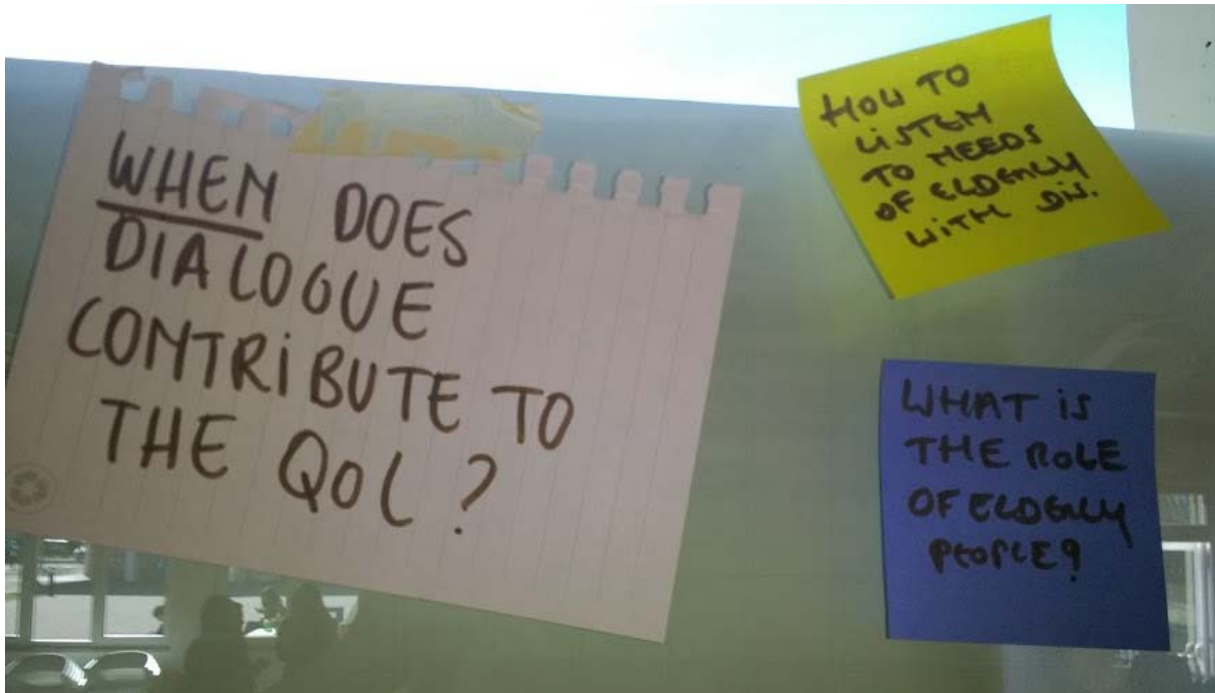 WHEN DOES
DIALOGUE
CONTRiBUTE TO
THE QOL?
HOW TO
LiSTEN
TO NEEDS
OF ELDERLY
WiTH DiS.
WHAT iS
THE ROLE
OF ELDERLY
PEOPLE?